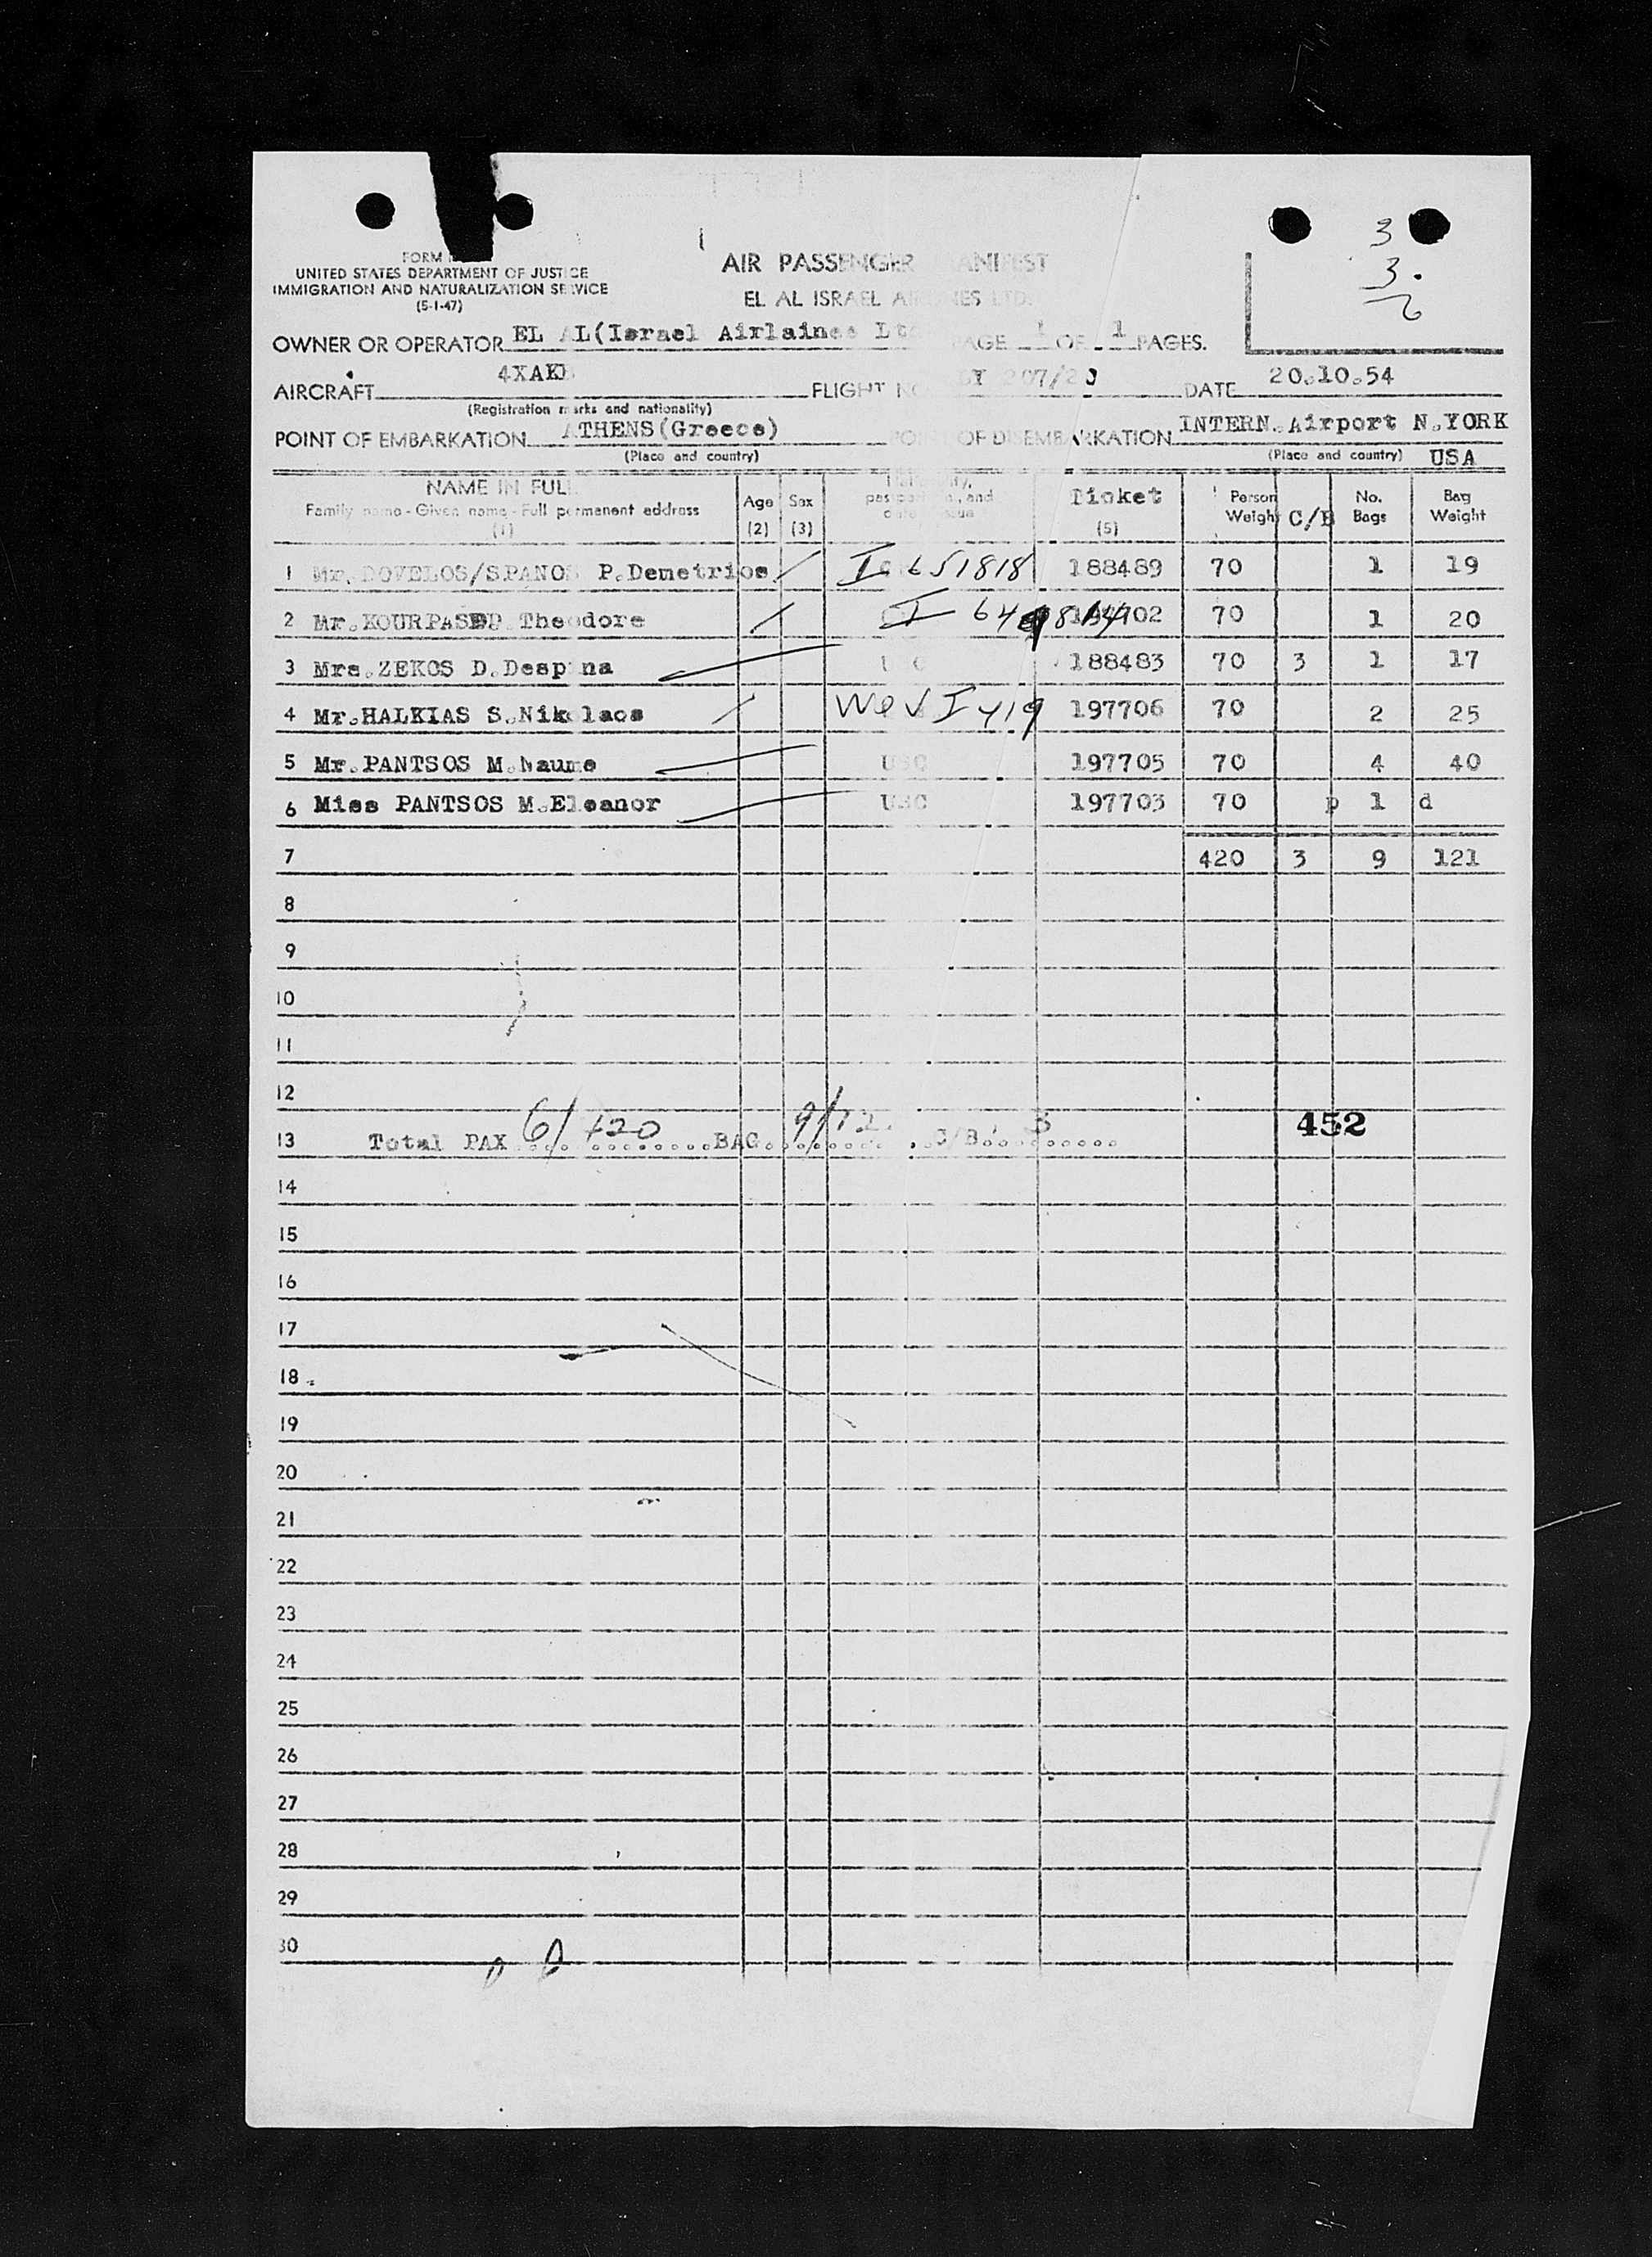 FORM
UNITED STATES DEPARTMENT OF JUSTICE
IMMIGRATION AND NATURALIZATION SERVICE
(5-1-47)
AIR PASSENGER MANIFEST
EL AL ISRAEL AIRLINES LTD.
3
3.
6
OWNER OR OPERATOR EL AL(Israel Airlaines Ltd PAGE 1 OF 1 PAGES.
AIRCRAFT 4XAKD FLIGHT NO LY 207/20 DATE 20.10.54
(Registration marks and nationality)
POINT OF EMBARKATION ATHENS(Greece) POINT OF DISEMBARKATION INTERN.Airport N.YORK
(Place and country) (Place and country) USA
NAME IN FULL Age Sex Ticket Person Weigh C/B No. Bags Bag Weight
Family name - Given name - Full permanent address
(1) (2) (3) (5)
1 Mr.DOVELOS/SPANOS P.Demetrios I 651818 188489 70 1 19
2 Mr.KOURPAS Theodore I 70 1 20
3 Mrs.ZEKOS D.Despina USC 188483 70 3 1 17
4 Mr.HALKIAS S.Nikolaos I 419 197706 70 2 25
5 Mr.PANTSOS M.Naume USC 197705 70 4 40
6 Miss PANTSOS M.Eleanor USC 197703 70 p 1 d
7 420 3 9 121
8
9
10
11
12
13 Total PAX 6/420 BAG 9/12 C/B 3 452
14
15
16
17
18
19
20
21
22
23
24
25
26
27
28
29
30